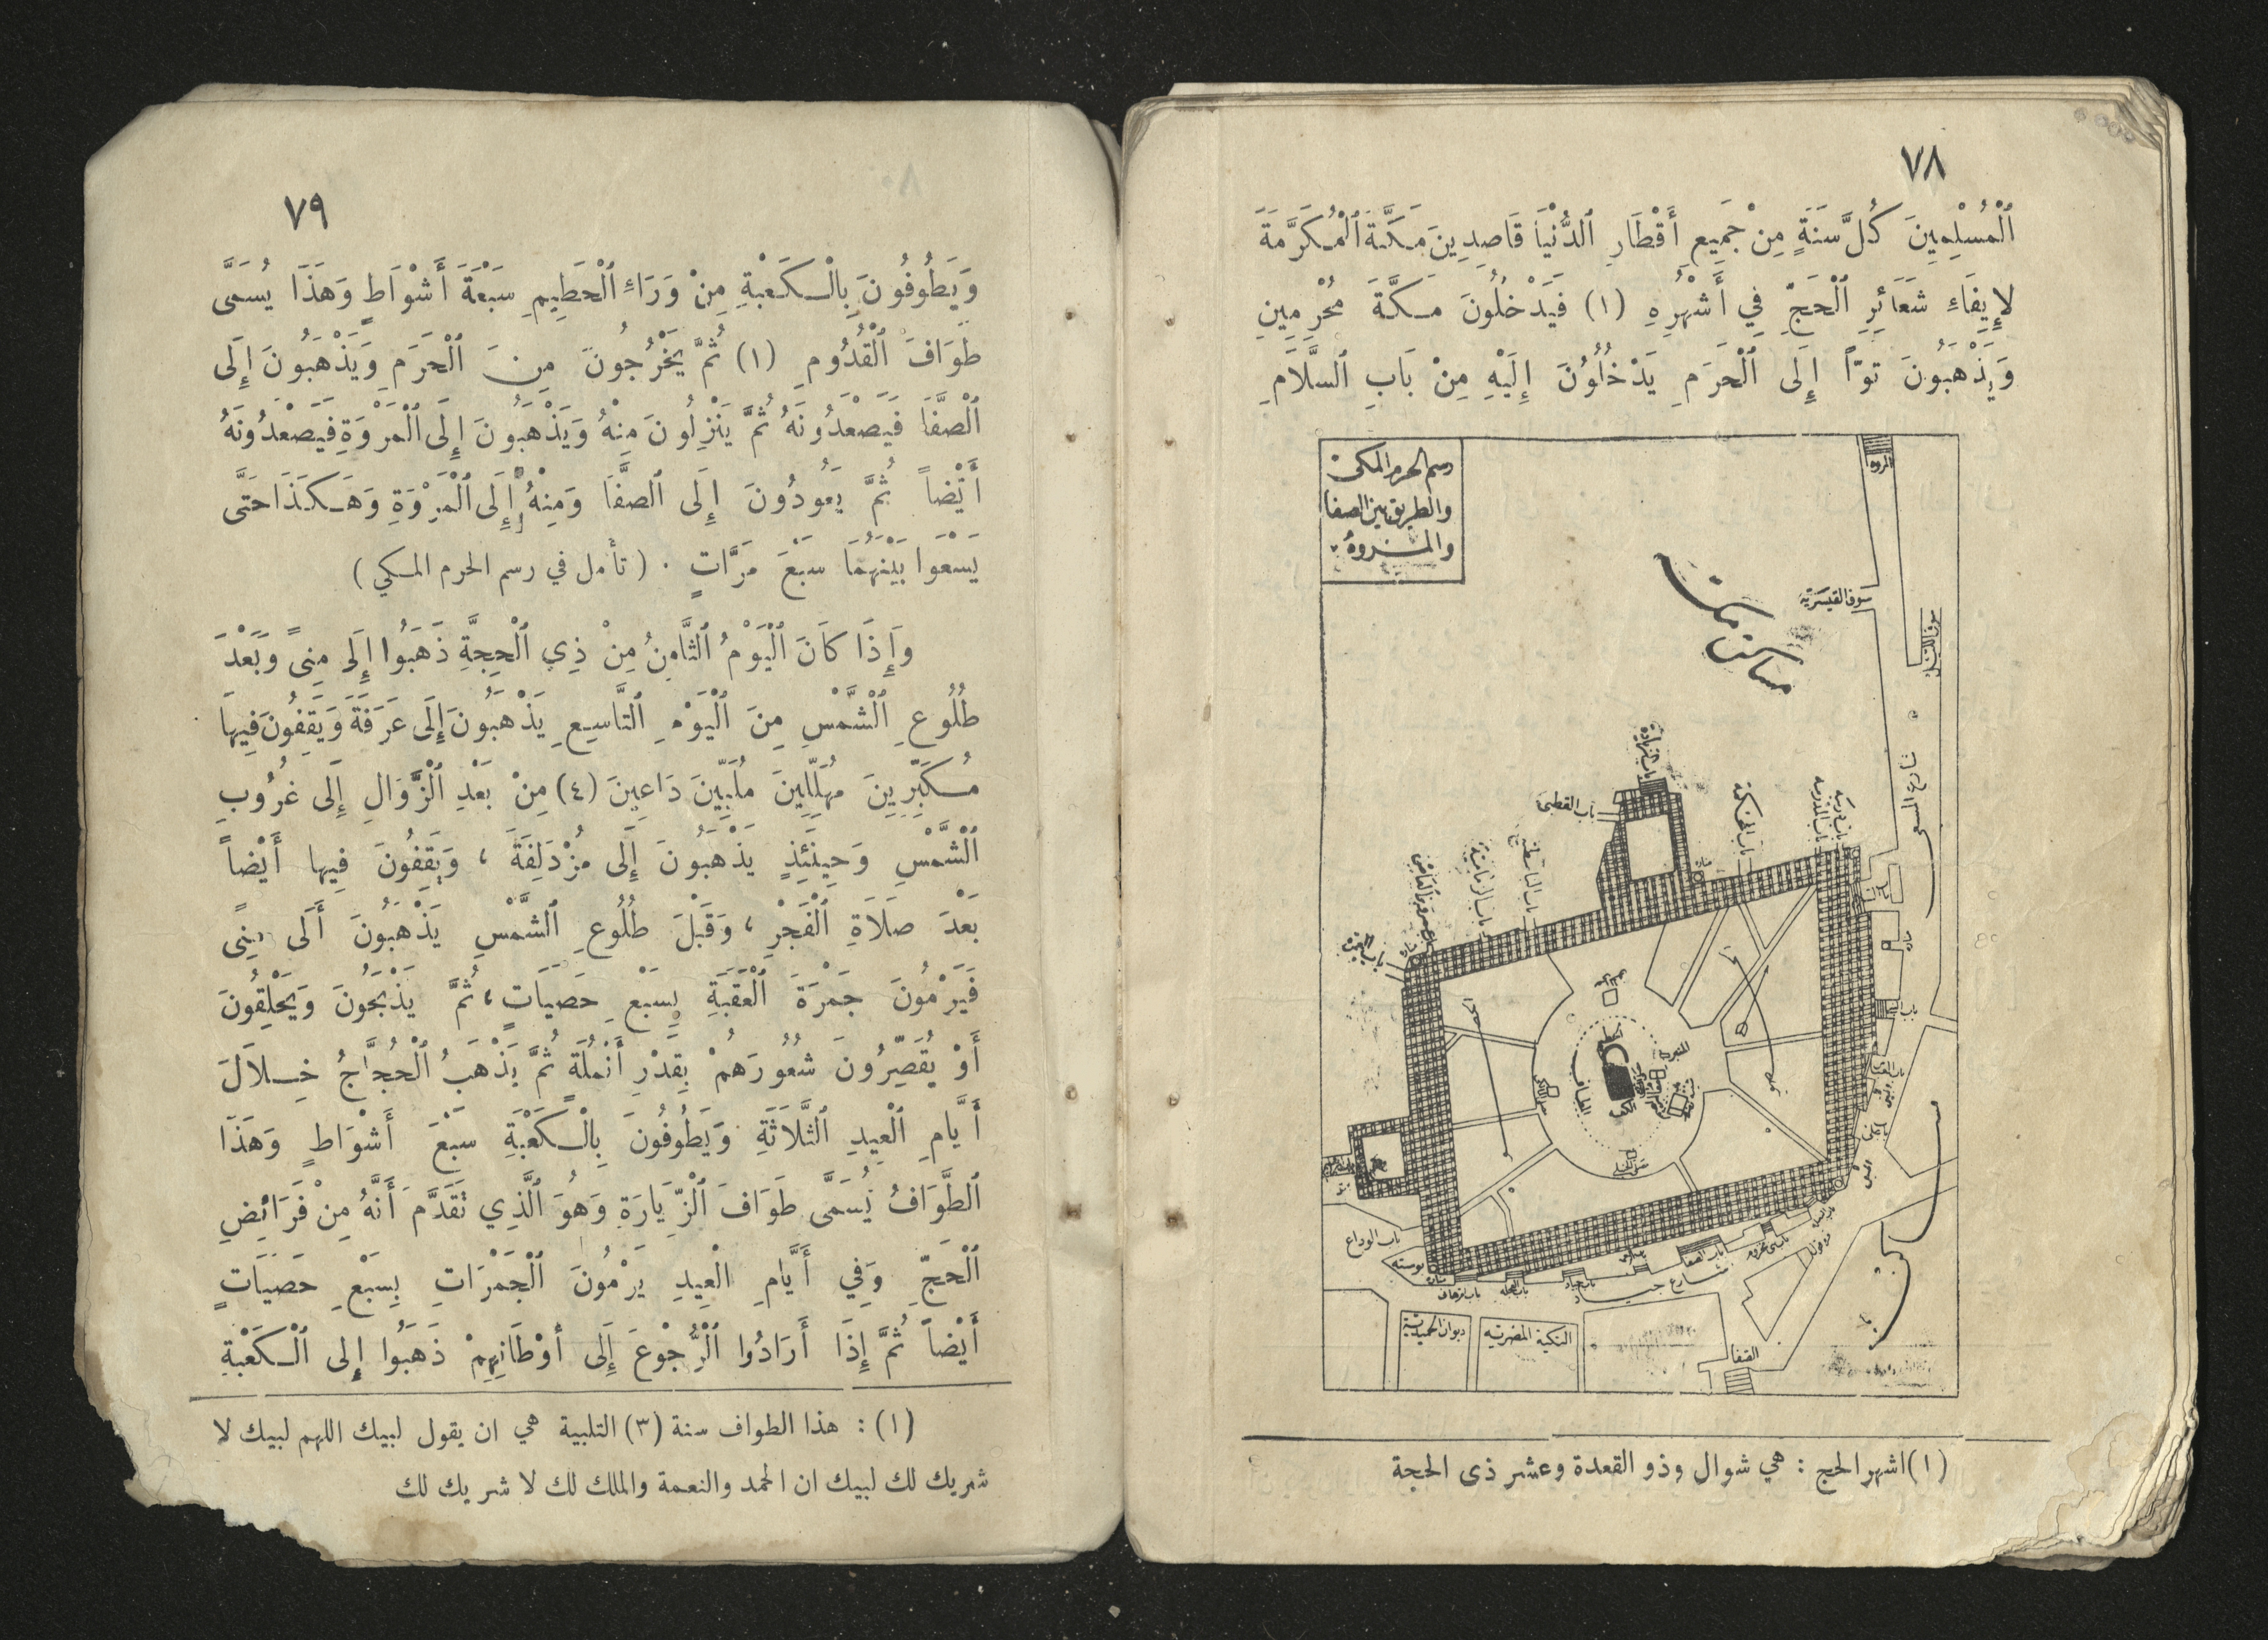 ٧٨
ٱلْمُسْلِمِينَ كُلَّ سَنَةٍ مِنْ جَمِيعِ أَقْطَارِ ٱلدُّنْيَا قَاصِدِينَ مَكَّةَ ٱلْمُكَرَّمَةَ
لإِيفَاءِ شَعَائِرِ ٱلْحَجِّ فِي أَشْهُرِهِ (١) فَيَدْخُلُونَ مَكَّةَ مُحْرِمِينِ
وَيَذْهَبُونَ توّاً إِلَى ٱلْحَرَمِ يَدْخُلُوُنَ إِلَيْهِ مِنْ بَابِ ٱلسَّلَامِ
رسم الحرم المكى
والطريق بين الصفا
والمروة
المروه
سوق القيسرية
سوق الليل
مساكن مكة
باب الزيادة
باب القطبى
باب المحكمة
باب المدرسه
باب الباسطية
باب الوداع
بوسته
باب الصفا
شارع جياد
ديوان الحميدية
التكية المصرية
الصفا
(١) اشهر الحج : هي شوال وذو القعدة وعشر ذى الحجة
٧٩
وَيَطُوفُونَ بِالْكَعْبَةِ مِنْ وَرَاءِ ٱلْحَطِيمِ سَبْعَةَ أَشْوَاطٍ وَهَذَا يُسَمَّى
طَوَافَ ٱلْقُدُومِ (١) ثُمَّ يَخْرُجُونَ مِنَ ٱلْحَرَمِ وَيَذْهَبُونَ إِلَى
ٱلْصَّفَا فَيَصْعَدُونَهُ ثُمَّ يَنْزِلُونَ مِنْهُ وَيَذْهَبُونَ إِلَى ٱلْمَرْوَةِ فَيَصْعَدُونَهُ
أَيْضاً ثُمَّ يَعُودُونَ إِلَى ٱلصفَّا وَمِنْهُ إِلَى ٱلْمَرْوَةِ وَهَكَذَا حَتَّى
يَسْعَوا بَيْنَهُمَا سَبْعَ مَرَّاتٍ . ( تأمل في رسم الحرم المكي )
وَإِذَا كَانَ ٱلْيَوْمُ ٱلثَّامِنُ مِنْ ذِي ٱلْحِجَّةِ ذَهَبُوا إِلَى مِنىً وَبَعْدَ
طُلُوعِ ٱلْشَّمْسِ مِنَ ٱلْيَوْمِ ٱلتَّاسِعِ يَذْهَبُونَ إِلَى عَرَفَةَ وَيَقِفُونَ فِيهَا
مُكَبِّرِينَ مُهَلِّلِينَ مُلَبِّينَ دَاعِينَ (٤) مِنْ بَعْدِ ٱلْزَّوَالِ إِلَى غُرُوبِ
ٱلْشَّمْسِ وَحِينَئِذٍ يَذْهَبُونَ إِلَى مُزْدَلِفَةَ ، وَيَقِفُونَ فِيها أَيْضاً
بَعْدَ صَلَاةِ ٱلْفَجْرِ ، وَقَبْلَ طُلُوعِ ٱلشَّمْسِ يَذْهَبُونَ أَلَى مِنىً
فَيَرْمُونَ جَمْرَةَ ٱلْعَقَبَةِ بِسَبْعِ حَصَيَاتٍ ، ثُمَّ يَذْبَحُونَ وَيَحْلِقُونَ
أَوْ يُقَصِّرُونَ شُعُورَهُمْ بِقَدْرِ أَنْمُلَةٍ ثُمَّ يَذْهَبُ ٱلْحُجَّاجُ خِلَالَ
أَيَّامِ ٱلْعِيدِ ٱلثَّلَاثَةِ وَيَطُوفُونَ بِالْكَعْبَةِ سَبْعَ أَشْوَاطٍ وَهَذَا
ٱلطَّوَافُ يُسَمَّى طَوَافَ ٱلْزِّيَارَةِ وَهُوَ ٱلَّذِي تَقَدَّمَ أَنَّهُ مِنْ فَرَائِضِ
ٱلْحَجِّ وَفِي أَيَّامِ الْعِيدِ يَرْمُونَ ٱلْجَمْرَاتِ بِسَبْعِ حَصَيَاتٍ
أَيْضاً ثُمَّ إِذَا أَرَادُوا ٱلْرُّجُوْعَ إِلَى أَوْطَانِهِمْ ذَهَبُوا إِلى ٱلْكَعْبَةِ
(١) : هذا الطواف سنة (٣) التلبية هي ان يقول لبيك اللهم لبيك لا
شريك لك لبيك ان الحمد والنعمة والملك لك لا شريك لك